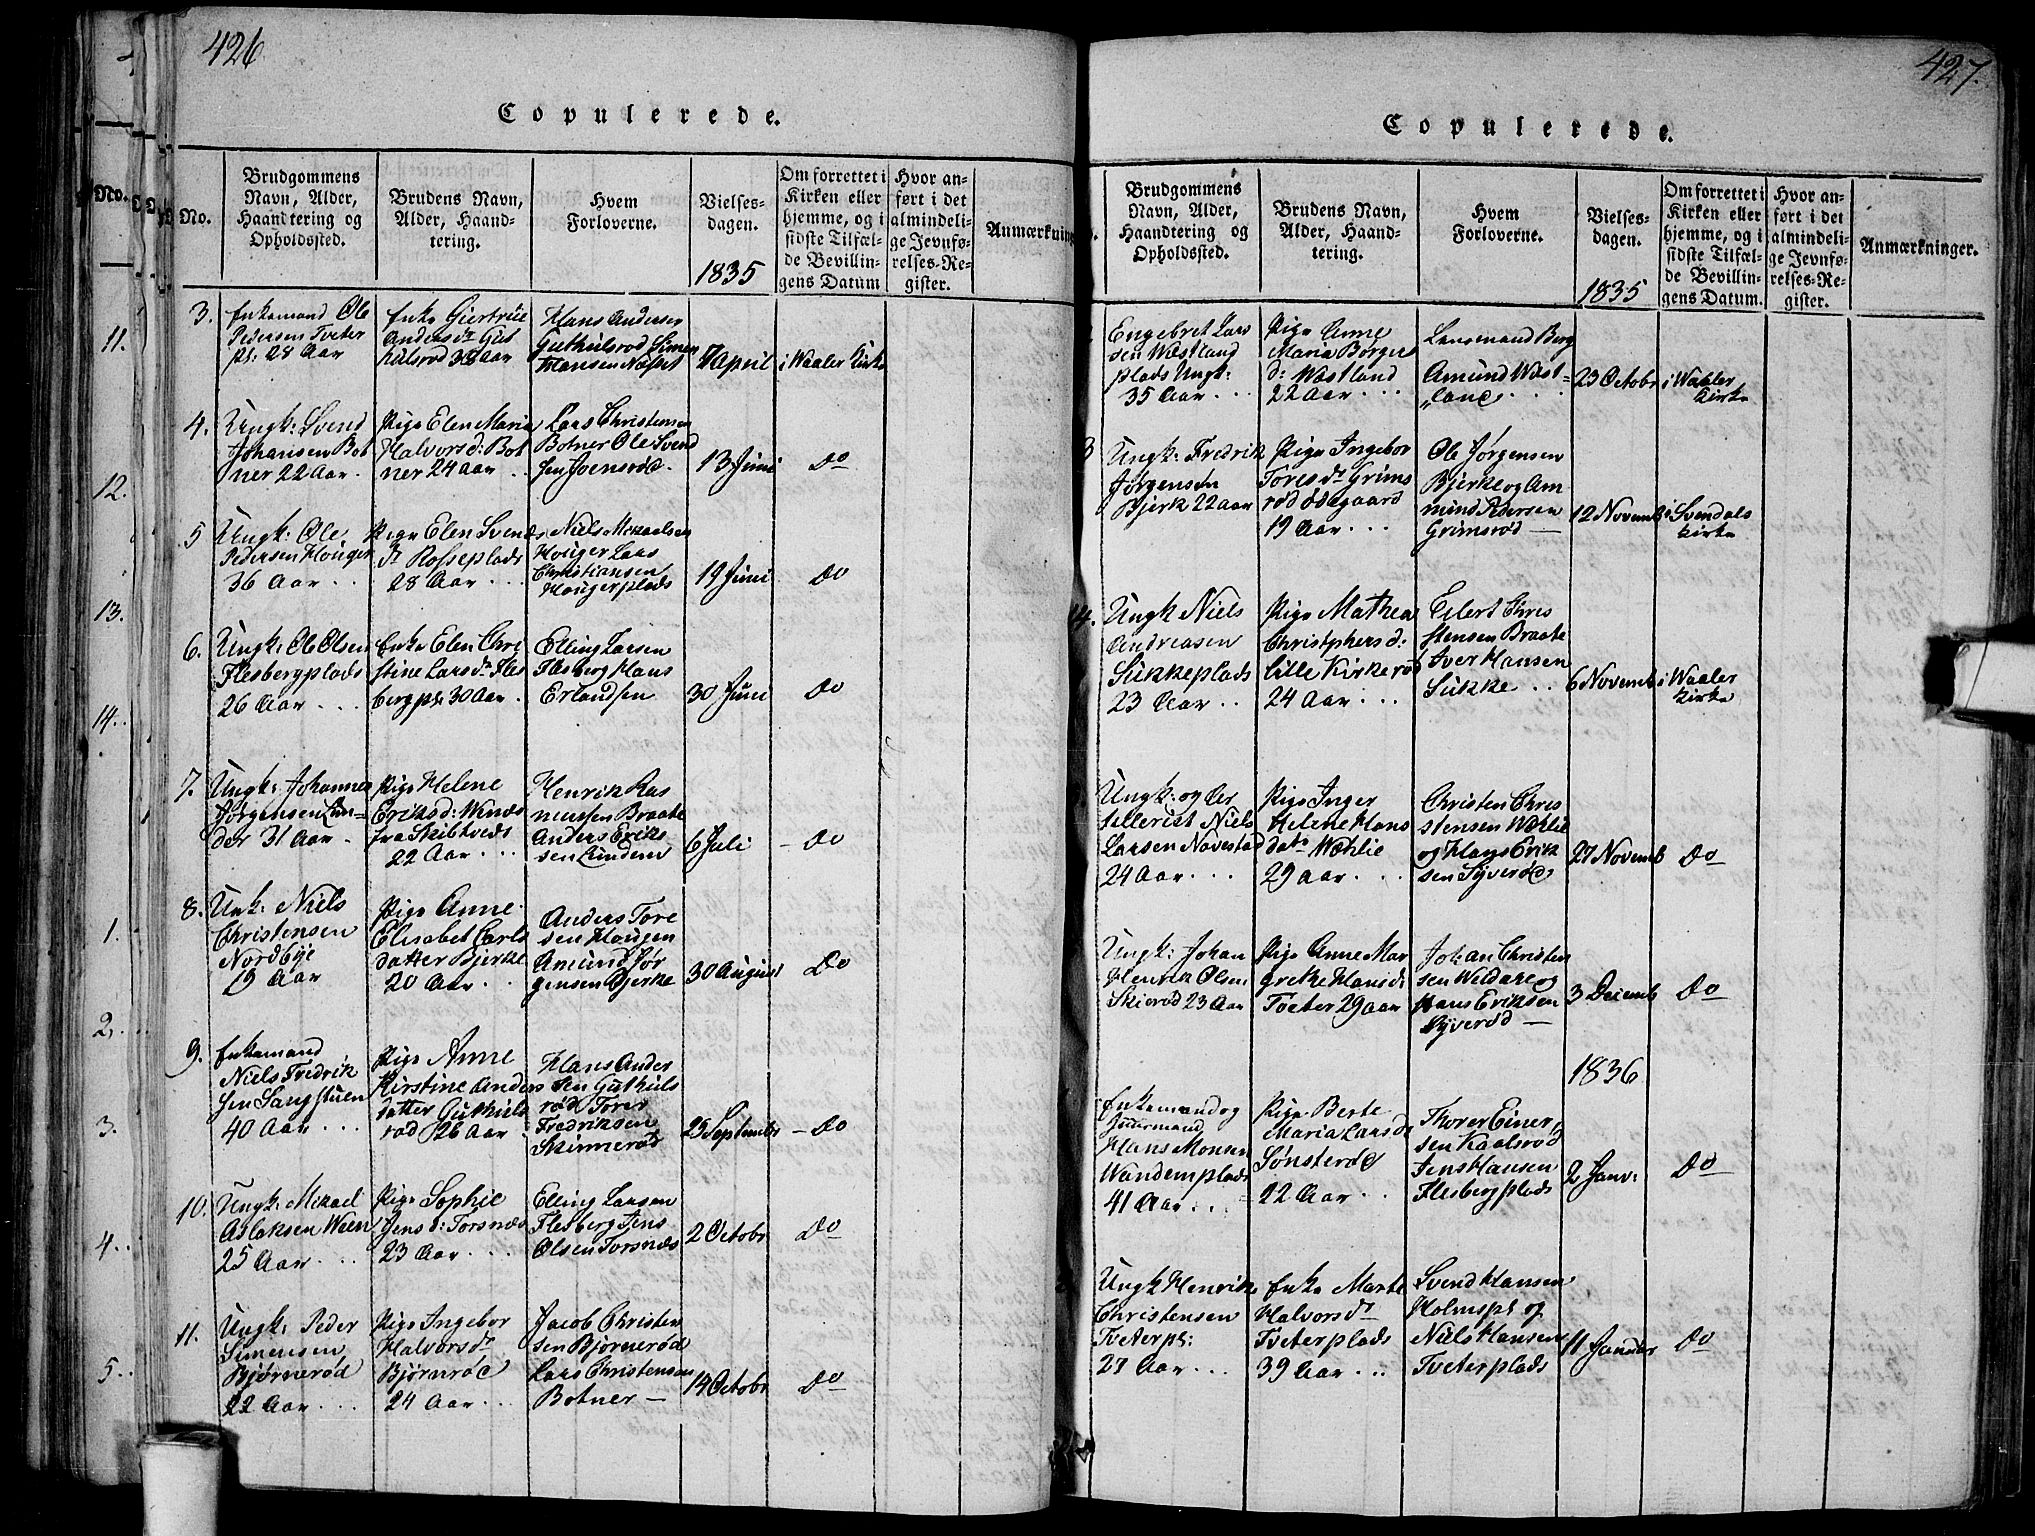 426
Copulerede.
No.
Brudgommens
Navn, Alder,
Haandtering og
Opholdssted.
Brudens Navn,
Alder, Haand-
tering.
Hvem
Forloverne.
Vielses-
dagen.
1835
Om forrettet i
Kirken eller
hjemme, og i
sidste Tilfæl-
de Bevillin-
gens Datum
Hvor an-
ført i det
almindeli-
ge Jevnfø-
relses-Re-
gister.
Anmærkning
3.
Enkemand Ole
Pedersen Tveter
pl: 28 Aar
Enke Giertrue
Andersdr Gut
hulsrød 38 aar
Hans Andersen
Guthulsrød Simen
Hansen Næsset
7 April
i Waaler Kirke
4.
Ungk: Svend
Johansen Bot
ner 22 Aar .
Pige Elen Maria
Halvorsd: Bot
ner 24 aar .
Lars Christensen
Botner Ole Svend
sen Joensrød.
13 Juni
Do
5
Ungk: Ole
Pedersen Houger
36 Aar . .
Pige Elen Svends
dr Rosseplads
28 Aar . . .
Niels Mikaelsen
Houger Lars
Christiansen
Hougerplads
19 Juni
Do
6.
Ungk: Ole Olsen
Flesbergplads
26 Aar . . .
Enke Elen Chri
stine Larsdr Fles
bergpl: 30 Aar .
Elling Larsen
Flesberg Hans
Erlandsen
30 Juni
Do
7.
Ungk: Johannes
Jørgensen Lun=
der 31 Aar .
Pige Helene
Eriksd: Winæs
fra Skibtvedt
22 Aar . . .
Henrik Ras
mussen Braate
Anders Erik
sen Lundern
6 Juli
- Do
8.
Unk: Niels
Christensen
Nordbye
19 Aar
Pige Anne
Elisabet Carls
datter Bjerke
20 Aar . .
Anders Tore
sen Hougen
Amund Jør
gensen Bjerke
30 August
Do
9.
Enkemand
Niels Fredrik
sen Sangstuen
40 Aar . . .
Pige Anne
Kirstine Anders
datter Guthuls
rød 26 Aar .
Hans Ander
sen Guthuls
rød Torer
Fredriksen
Skinnerød
25 Septembr
- Do
10.
Ungk: Mikael
Aslaksen Ween
25 Aar . . .
Pige Sophie
Jensd: Torsnæs
23 Aar . . .
Elling Larsen
Flesberg Jens
Olsen Torsnæs
2 Octobr
Do
11.
Ungk: Peder
Simensen
Bjørnerød
22 Aar . . .
Pige Ingebor
Halvorsdr
Bjørnrød
24 Aar . . .
Jacob Christen
sen Bjørnerød
Lars Christensen
Botner —
14 Octobr
Do
427.
Copulerede.
Brudgommens
Navn, Alder,
Haandtering og
Opholdssted.
Brudens Navn,
Alder, Haand-
tering.
Hvem
Forloverne.
Vielses-
dagen.
1835
Om forrettet i
Kirken eller
hjemme, og i
sidste Tilfæl-
de Bevillin-
gens Datum.
Hvor an-
ført i det
almindeli-
ge Jevnfø-
relses-Re-
gister.
Anmærkninger.
Engebret Lars
sen Wæstland
plads Ungk:
35 Aar . . .
Pige Anne
Maria Børges
d: Wæstland
22 Aar . . .
Lensmand Berg
Amund Wæst=
land . . .
23 Octobr
i Waaler
Kirke
3
Ungk: Fredrik
Jørgensen
Bjerk 22 aar
Pige Ingebor
Toresdr Grims
rød ødegaard
19 Aar . . .
Ole Jørgensen
Bjerke og Am
mund Pedersen
Grimsrød —
12 Novemb
i Svendals
Kirke
14.
Ungk Niels
Andreasen
Sukkeplads
23 Aar . .
Pige Mathea
Christphersd:
lille Kirkerød
24 Aar . . .
Eilert Chris
stensen Braate
Iver Hansen
Sukke . .
6 Novemb
i Waaler
Kirke
Ungk: og Ar
tillerist Niels
Larsen Navestad
24 Aar . . .
Pige Inger
Helene Hans
datr Wæhlie
29 aar . . .
Christen Chris
stensen Wæhlie
og Hans Erik
sen Syverød
27 Novemb
Do
Ungk: Johan
Henrik Olsen
Skierød 23 Aar
Pige Anne Mar
grethe Hansd:
Tveter 29 aar
Johan Christen
sen Weidahl og
Hans Eriksen
Syverød —
3 Decemb
Do
1836
Enkemand og
Huusmand
Hans Monsen
Wandemplads
41 Aar . . .
Pige Berte
Maria Larsdr
Sønsterød
22 Aar . .
Thorer Einer
sen Kaalsrød
Jens Hansen
Flesbergplads
2 Janv:
Do
Ungk Henrik
Christensen
Tveterpl:
27 Aar . .
Enke Marte
Halvorsdr
Tveterplads
39 Aar . . .
Svend Hansen
Holmspl og
Niels Hansen
Tveterplads
11 Januar
Do
No.
11.
12.
13.
14.
1.
2.
3.
4.
5.